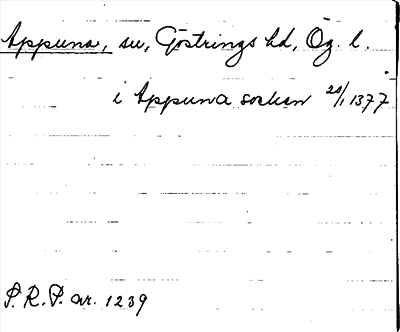 Appuna, su, Göstrings hd, Ög. l.
i Appuna socken 20/1 1377
S.R.P. nr. 1239